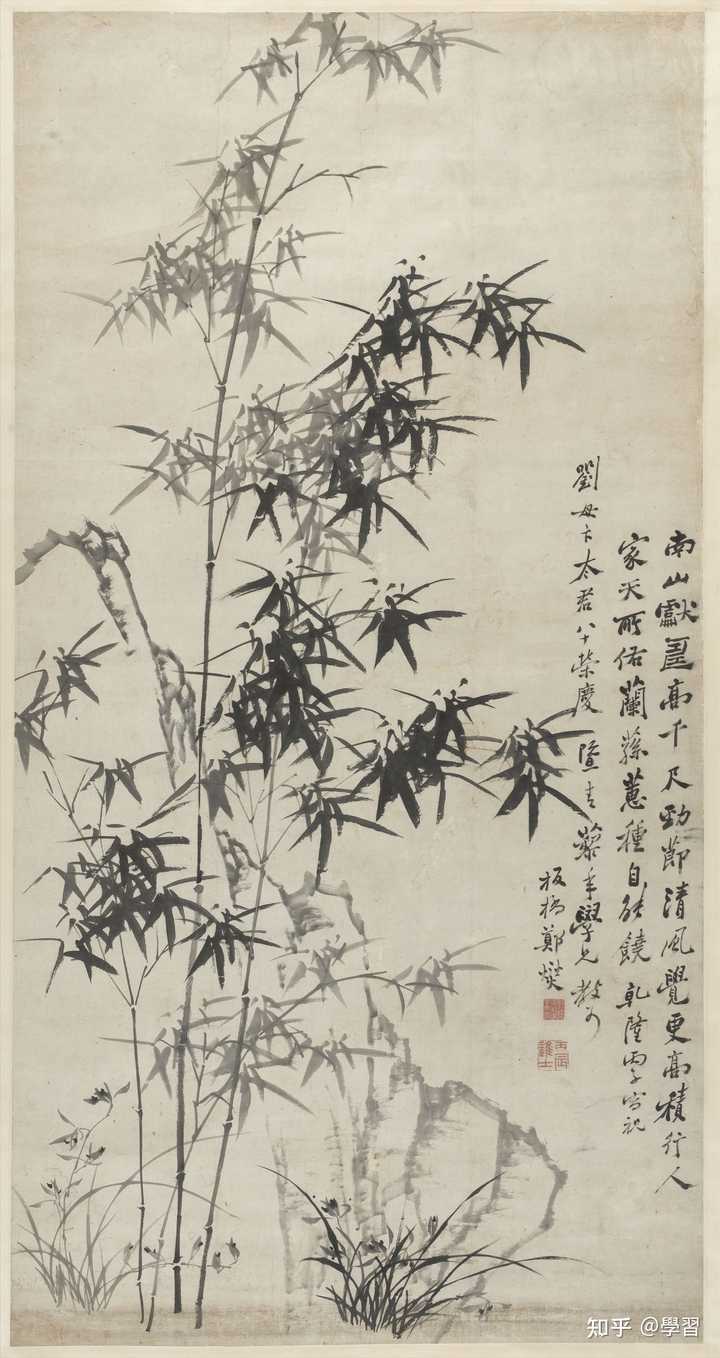 南山獻壽高千尺勁節清風覺更高積行人
家天所佑蘭蓀蕙種自能饒 乾隆丙子寫祝
劉母卞太君八十榮慶 暨青藜年學兄教可
板橋鄭燮
丙辰進士
知乎 @學習